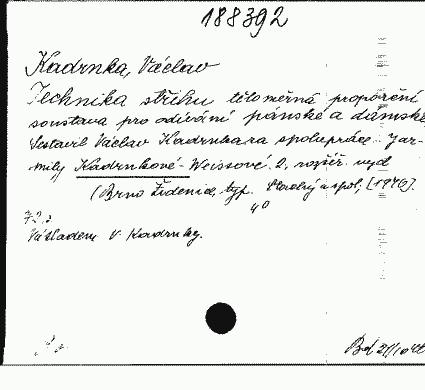 188392
Kadrnka, Václav
Technika střihu těloměrná proporční
soustava pro odívání pánské a dámské
Sestavil Václav Kadrnka za spolupráce Jar-
mily Kadrnkové-Weissové. 2. rozšíř. vyd
(Brno Židenice, typ. a spol., [1946].
4°
Nákladem V. Kadrnky.